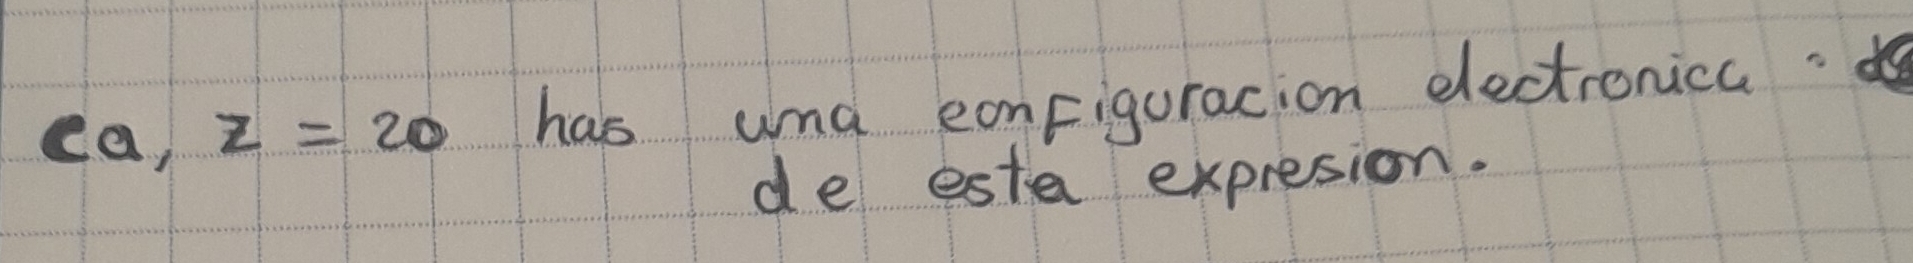 ca, z = 20 has una configuracion electronica.
de esta expresion.